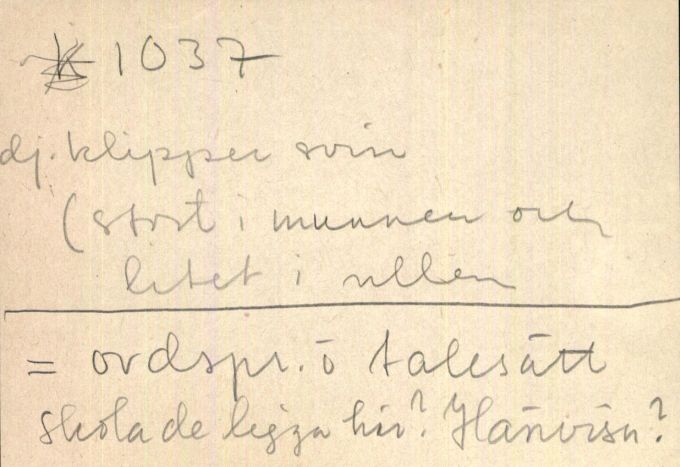 K 1037
dj. klipper svin
(stort i munnen och
litet i ullen
= ordspr. o talesätt
skola de ligga här? Hänvisn?